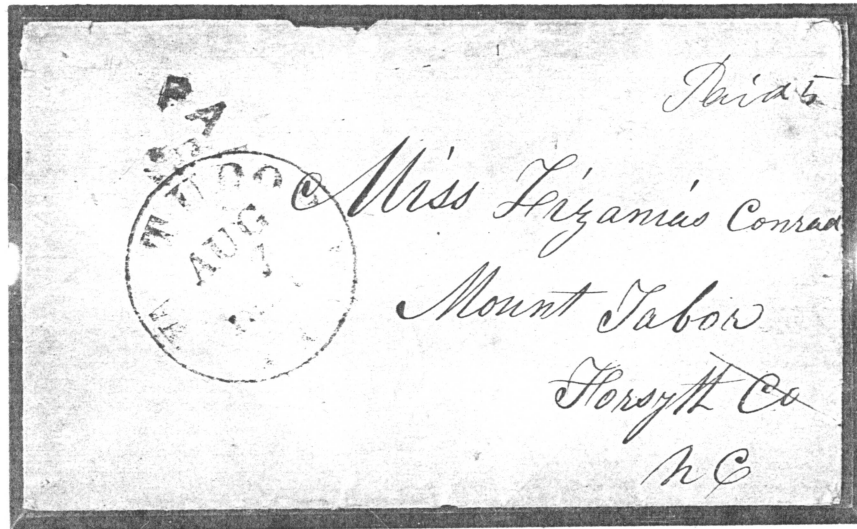 Paid 5
PA
TUDO
AUG
7
VA
Miss Lizamias Conrad
Mount Tabor
Forsyth Co
N C